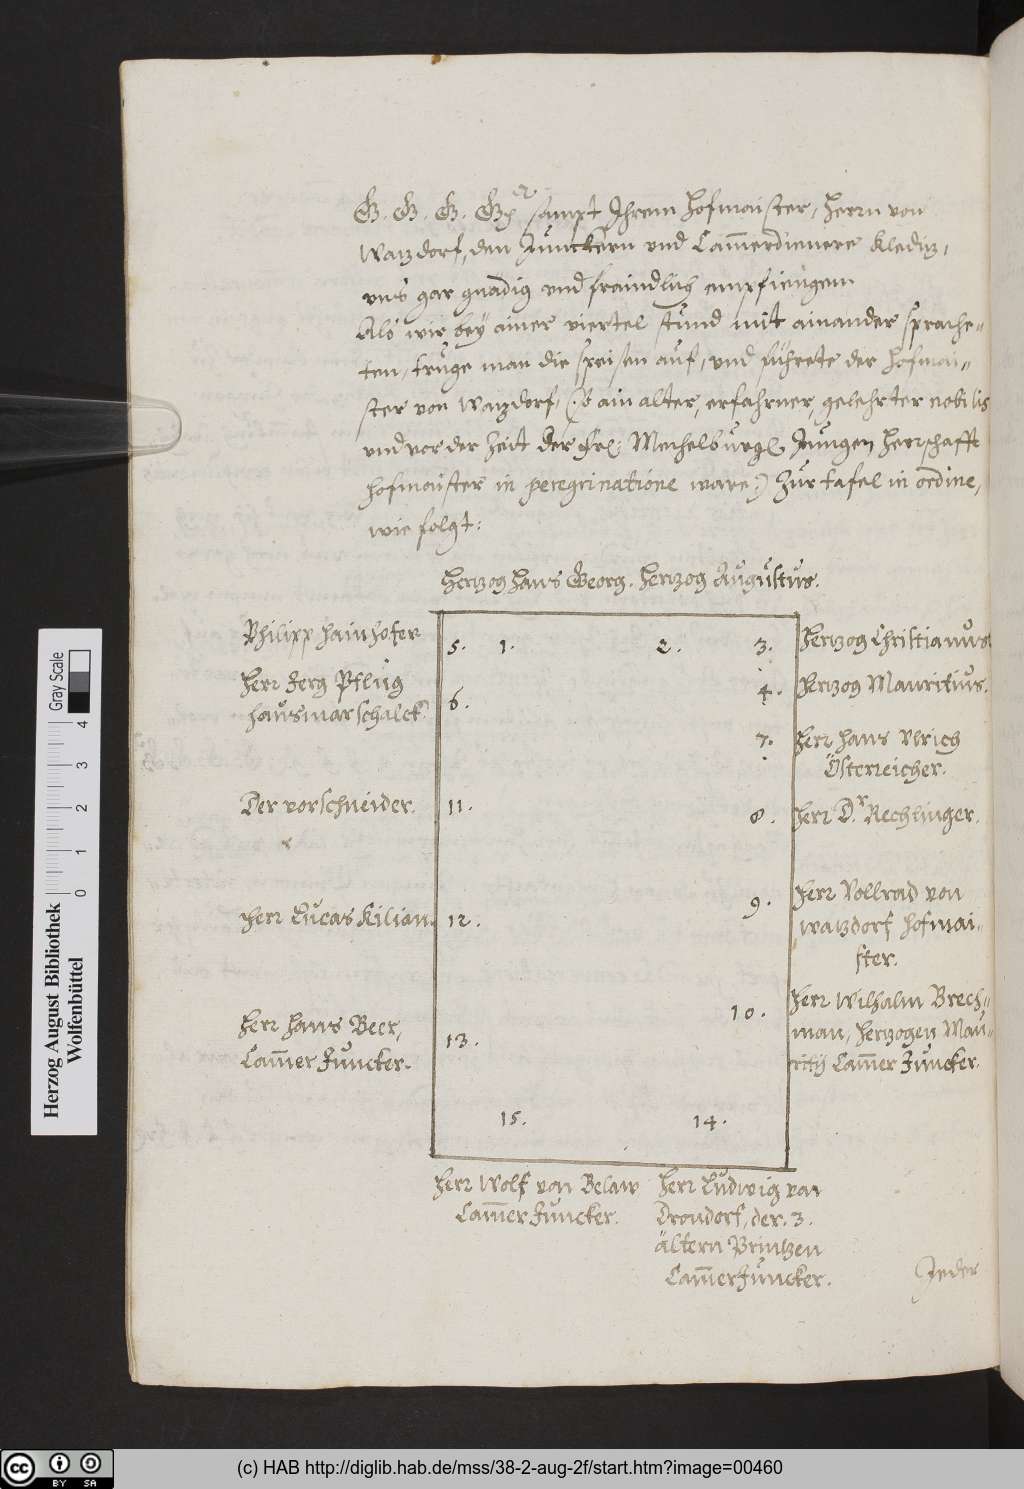 G. G. G. Gn sampt Ihrem Hofmaister, Herrn von
Wazdorf, den Junckern und Cam̅erdienere Kleding,
uns gar gnädig und fraindlich empfiengen
Als wir bey ainer viertel stund mit ainander sprache-
ten, truge man die speisen auf, und führete der Hofmai-
ster von Wazdorf, (: so ain alter, erfahrner, gelehrter nobilis
und vor der Zeit der Mechelburg Jungen Herrschafft
hofmaister in peregrinatione ware:) Zur tafel in ordine,
wie folgt:
Herzog Hans Georg. Herzog Augustus.
Philipp Hainhofer
5. 1. 2. 3.
Herzog Christianus.
Herr Jerg Pflug
hausmarschalck.
6. 4.
Herzog Mauritius.
7.
Herr Hans Ulrich
Österreicher.
Der vorschneider.
11. 8.
Herr D.r Rechlinger.
Herr Lucas Kilian.
12. 9.
Herr Vollrad von
Wazdorf Hofmai-
ster.
Herr Hans Beer,
Cam̅er Juncker.
13. 10.
Herr Wilhalm Brech-
man, Herzogen Mau-
ritij Cam̅er Juncker.
15. 14.
Herr Wolf von Belaw
Cam̅er Juncker.
Herr Ludwig von
Drondorf, der. 3.
ältern Printzen
Cam̅erJuncker.
Jeder
Herzog August Bibliothek
Wolfenbüttel
Gray Scale
0 1 2 3 4
cc BY SA
(c) HAB http://diglib.hab.de/mss/38-2-aug-2f/start.htm?image=00460